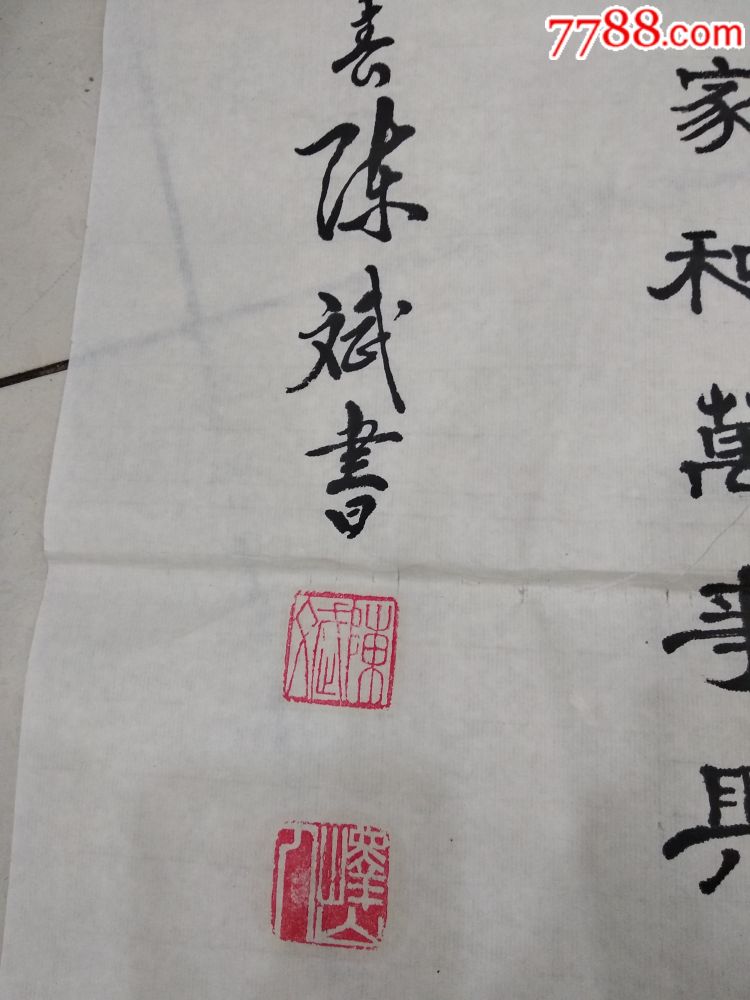 7788.com
家和萬事興
春陈斌書
陳斌